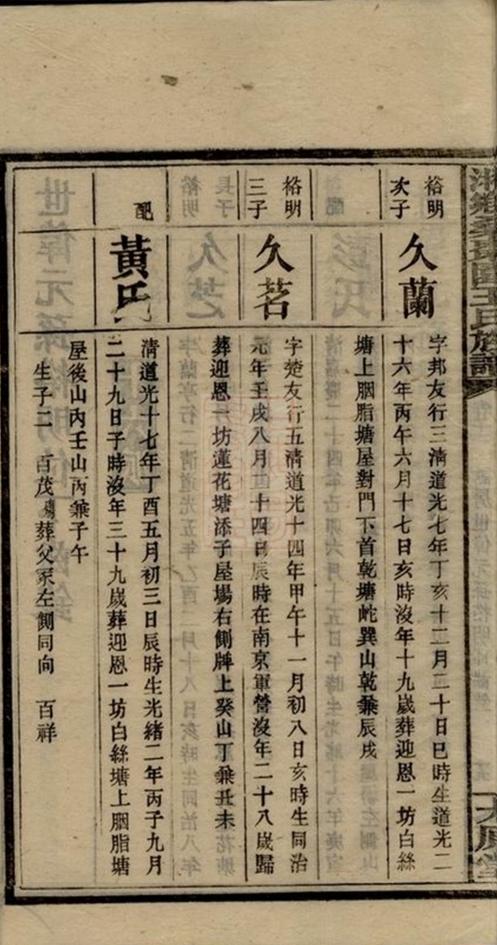 裕明
次子
久蘭
字邦友行三清道光七年丁亥十二月二十日巳時生道光二
十六年丙午六月十七日亥時沒年十九歲葬迎恩一坊白絲
塘上胭脂塘屋對門下首乾塘屹巽山乾兼辰戌
裕明
三子
久茗
字楚友行五清道光十四年甲午十一月初八日亥時生同治
元年壬戌八月二十四日辰時在南京軍營沒年二十八歲歸
葬迎恩一坊蓮花塘添子屋場右側牌上癸山丁兼丑未
配
黃氏
清道光十七年丁酉五月初三日辰時生光緒二年丙子九月
二十九日子時沒年三十九歲葬迎恩一坊白絲塘上胭脂塘
屋後山內壬山丙兼子午
生子二 百茂殤葬父冢左側同向 百祥